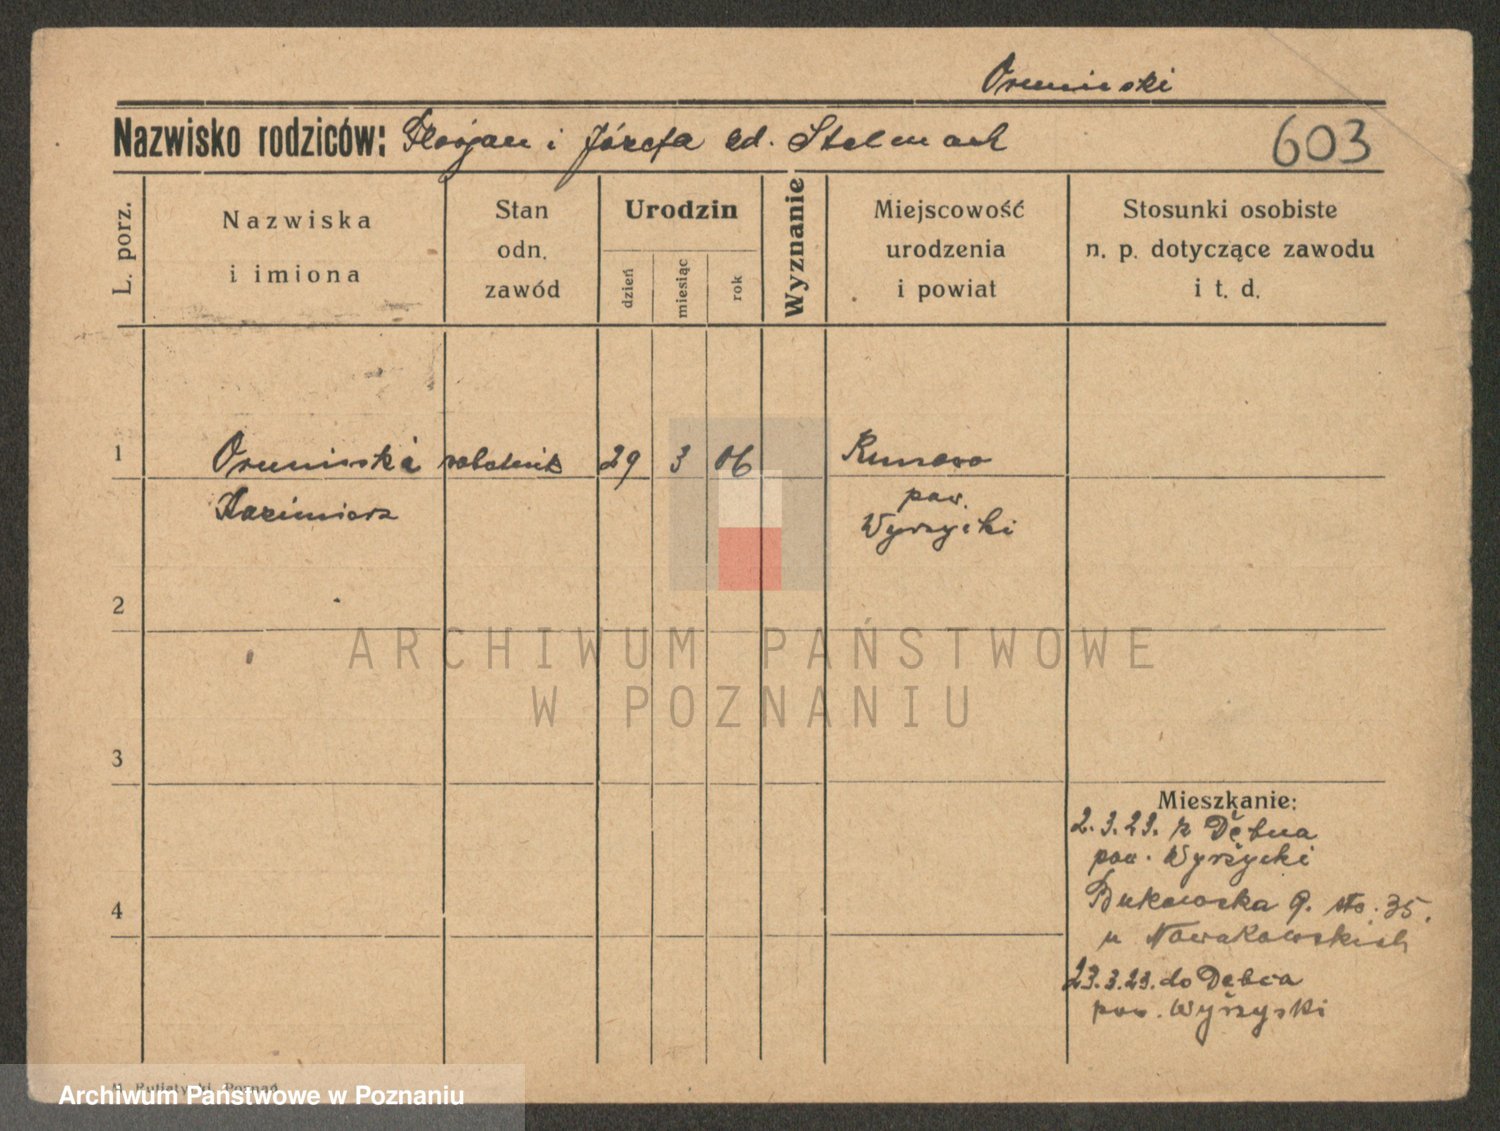 Orumiński
Nazwisko rodziców: Florjan i Józefa zd. Stelmach
603
L. porz.
Nazwiska
i imiona
Stan
odn.
zawód
Urodzin
dzień
miesiąc
rok
Wyznanie
Miejscowość
urodzenia
i powiat
Stosunki osobiste
n. p. dotyczące zawodu
i t. d.
1
Orumiński robotnik 29 3 06 Runowo
Kazimierz pow.
Wyrzycki
2
ARCHIWUM PAŃSTWOWE
W POZNANIU
3
Mieszkanie:
2.3.23. z Dębna
pow. Wyrzycki
4
Bukowska 9. 35.
u Nowakowskich
23.3.23. do Dębna
pow. Wyrzyski
Poznań
Archiwum Państwowe w Poznaniu